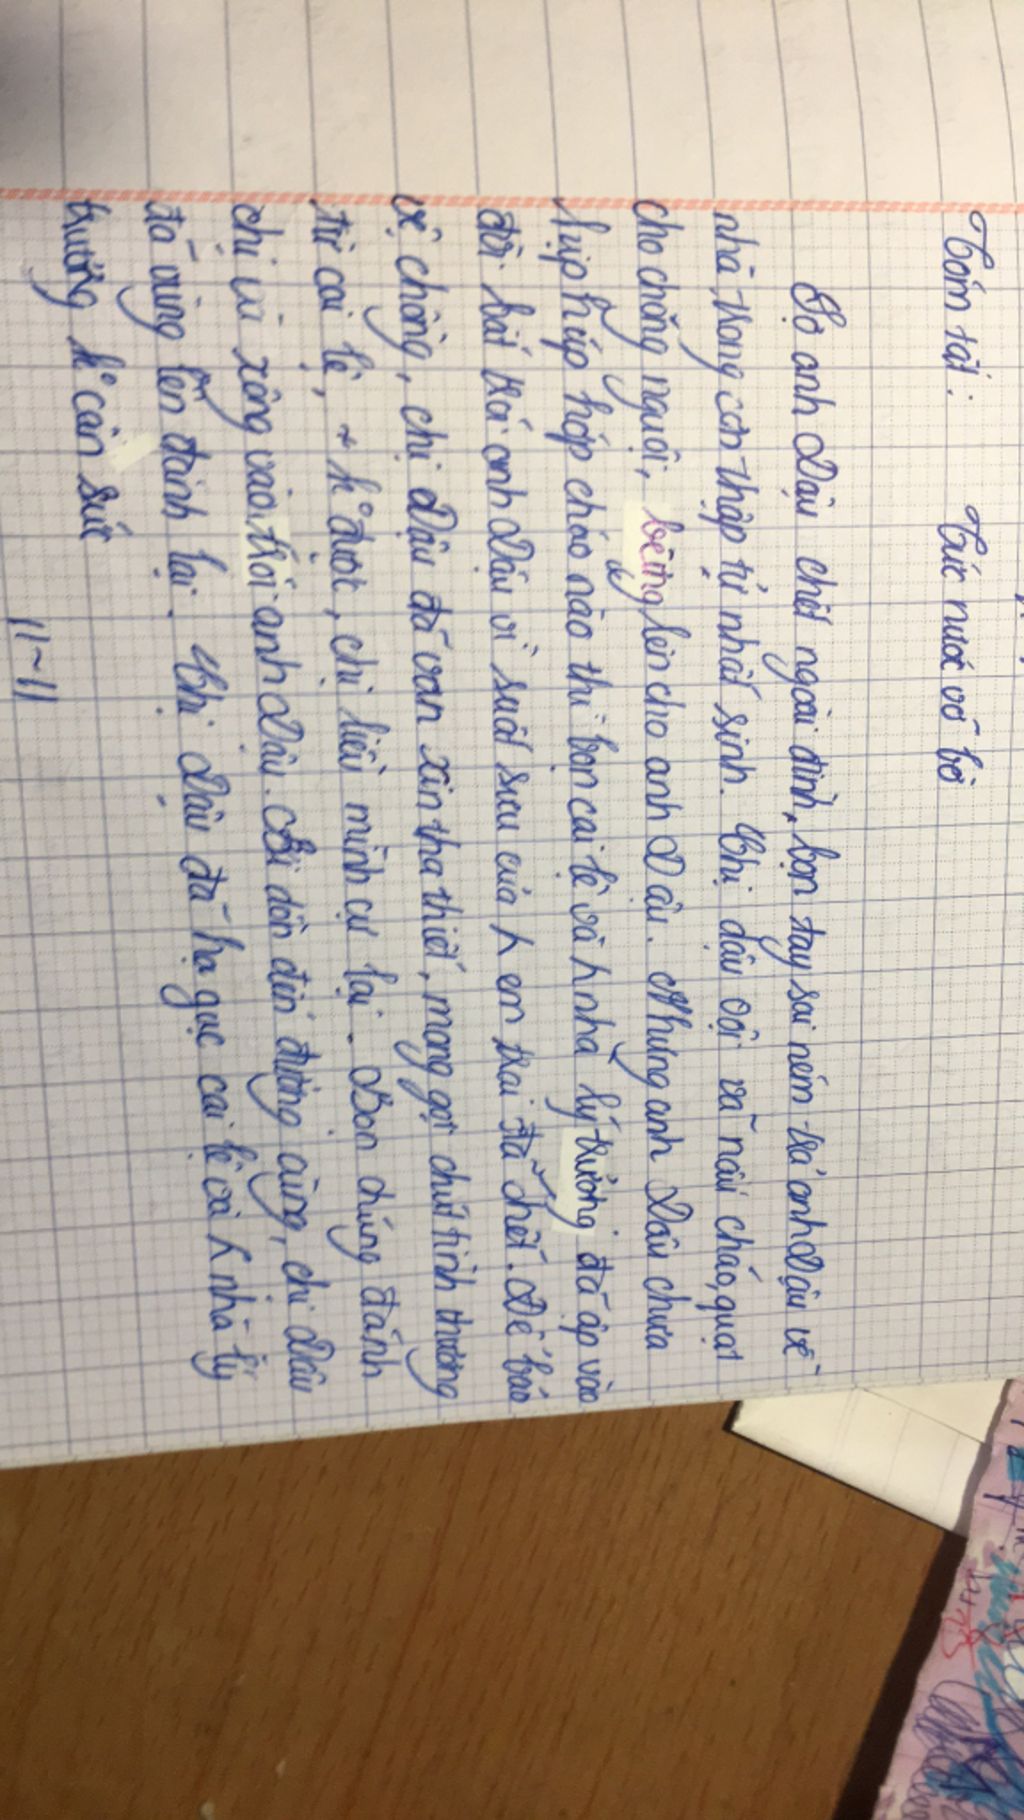 Tóm tắt: Tức nước vỡ bờ
Sợ anh Dậu chết ngoài đình, bọn tay sai ném trả anh Dậu về
nhà, trong cơn thập tử nhất sinh. Chị dậu vội vã nấu cháo, quạt
cho chóng nguội, bưng lên cho anh Dậu. Nhưng anh Dậu chưa
kịp húp hớp cháo nào thì bọn cai lệ và n nhà lý trưởng đã ập vào
đòi bắt trói anh Dậu vì suất sưu của n em trai đã chết. Để bảo
vệ chồng, chị Dậu đã van xin tha thiết, mong gợi chút tình thương
từ cai lệ, k° được, chị liều mình cự lại. Bọn chúng đánh
chị và xông vào, trói anh Dậu. Bị dồn đến đường cùng, chị Dậu
đã vùng lên đánh lại. Chị Dậu đã hạ gục cai lệ và n nhà lý
trưởng k° cân sức
11~11